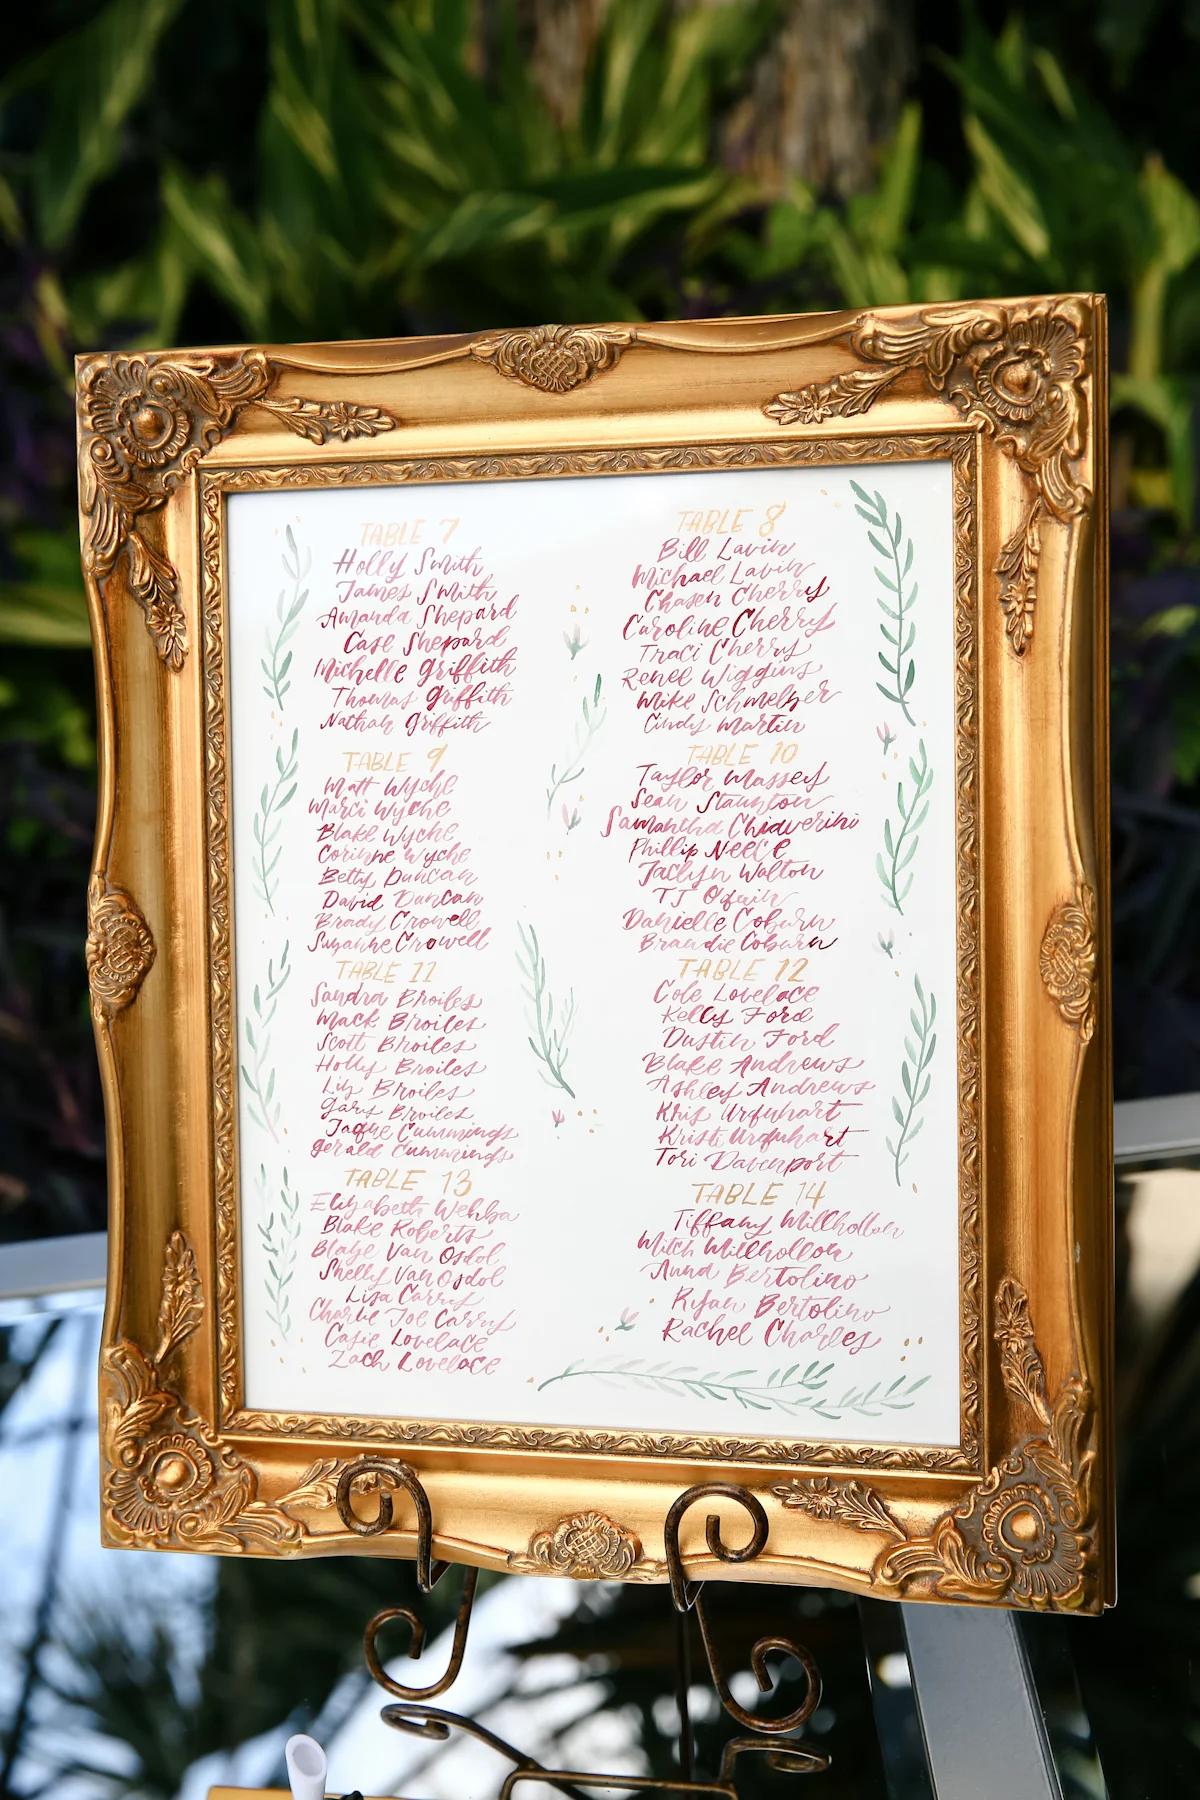 TABLE 7
Holly Smith
James Smith
Amanda Shepard
Case Shepard
Michelle Griffith
Thomas Griffith
Nathan Griffith
TABLE 8
Bill Lavin
Michael Lavin
Chasen Cherry
Caroline Cherry
Traci Cherry
Renee Wiggins
Mike Schmelzer
Cindy Martin
TABLE 9
Matt Wyche
Marci Wyche
Blake Wyche
Corinne Wyche
Betty Duncan
David Duncan
Brady Crowell
Suzanne Crowell
TABLE 10
Taylor Massey
Sean Staunton
Samantha Chiaverini
Phillip Neece
Jaclyn Walton
TJ
Danielle Coburn
Brandie Coburn
TABLE 11
Sandra Broiles
Mack Broiles
Scott Broiles
Holly Broiles
Lily Broiles
Gary Broiles
Jaque Cummings
Gerald Cummings
TABLE 12
Cole Lovelace
Kelly Ford
Dustin Ford
Blake Andrews
Ashley Andrews
Kris Urquhart
Kristi Urquhart
Tori Davenport
TABLE 13
Elizabeth Wehba
Blake Roberts
Blaze Van Osdol
Shelly Van Osdol
Lisa Carry
Charlie Joe Carry
Casie Lovelace
Zach Lovelace
TABLE 14
Tiffany Millhollon
Mitch Millhollon
Anna Bertolino
Ryan Bertolino
Rachel Charles